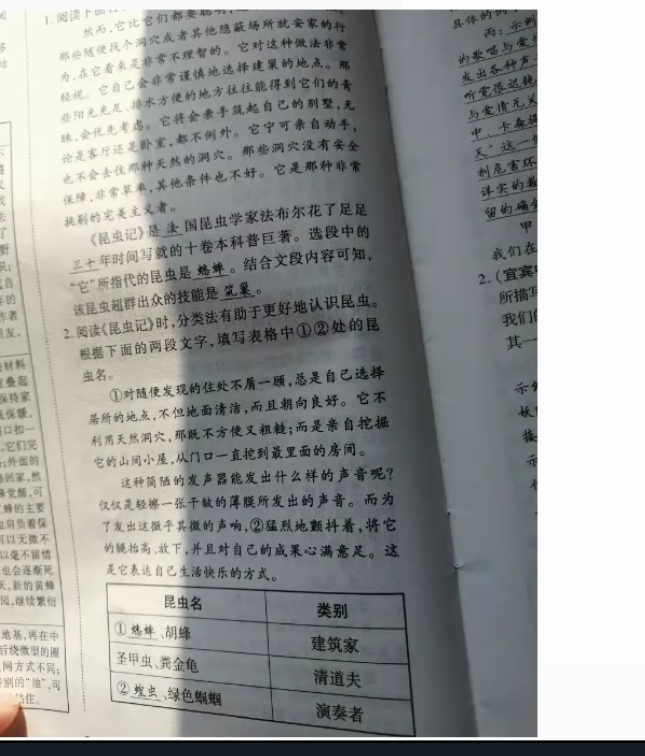 1.阅读下面
然而,它比它们都要聪明,
那些随便找个洞穴或者其他隐蔽场所就安家的行
为,在它看来是非常不理智的。它对这种做法非常
轻视。它自己会非常谨慎地选择建巢的地点。那
些阳光充足、排水方便的地方往往能得到它们的青
睐,会优先考虑。它将会亲手筑起自己的别墅,无
论是客厅还是卧室,都不例外。它宁可亲自动手,
也不会去住那种天然的洞穴。那些洞穴没有安全
保障,非常草率,其他条件也不好。它是那种非常
挑剔的完美主义者。
《昆虫记》是 法 国昆虫学家法布尔花了足足
三十 年时间写就的十卷本科普巨著。选段中的
“它”所指代的昆虫是 蟋蟀 。结合文段内容可知,
该昆虫超群出众的技能是 筑巢 。
2.阅读《昆虫记》时,分类法有助于更好地认识昆虫。
根据下面的两段文字,填写表格中①②处的昆
虫名。
①对随便发现的住处不屑一顾,总是自己选择
居所的地点,不但地面清洁,而且朝向良好。它不
利用天然洞穴,那既不方便又粗糙;而是亲自挖掘
它的山间小屋,从门口一直挖到最里面的房间。
这种简陋的发声器能发出什么样的声音呢?
仅仅是轻擦一张干皱的薄膜所发出的声音。而为
了发出这微乎其微的声响,②猛烈地颤抖着,将它
的腿抬高、放下,并且对自己的成果心满意足。这
是它表达自己生活快乐的方式。
昆虫名 类别
① 蟋蟀 、胡蜂 建筑家
圣甲虫、粪金龟 清道夫
② 蝗虫 、绿色蝈蝈 演奏者
材料
叠起
保持家
保暖、
口扣一
,它们完
;外面的
回家,然
觉醒,可
蜂的主要
肩负着保
可以无微不
以毫不留情
也会逐渐死
天,新的黄蜂
园,继续繁衍
地基,再在中
后绕微型的圈
网方式不同;
别的“油”,可
站住。
具体的例
丙:示例
的歌唱与爱情
发出各种声
听觉很迟钝
与爱情无关
中,卡森
天”这一
利危害环
详实的
留的痛
甲
我们在
2.(宜宾
所描写
我们
其一